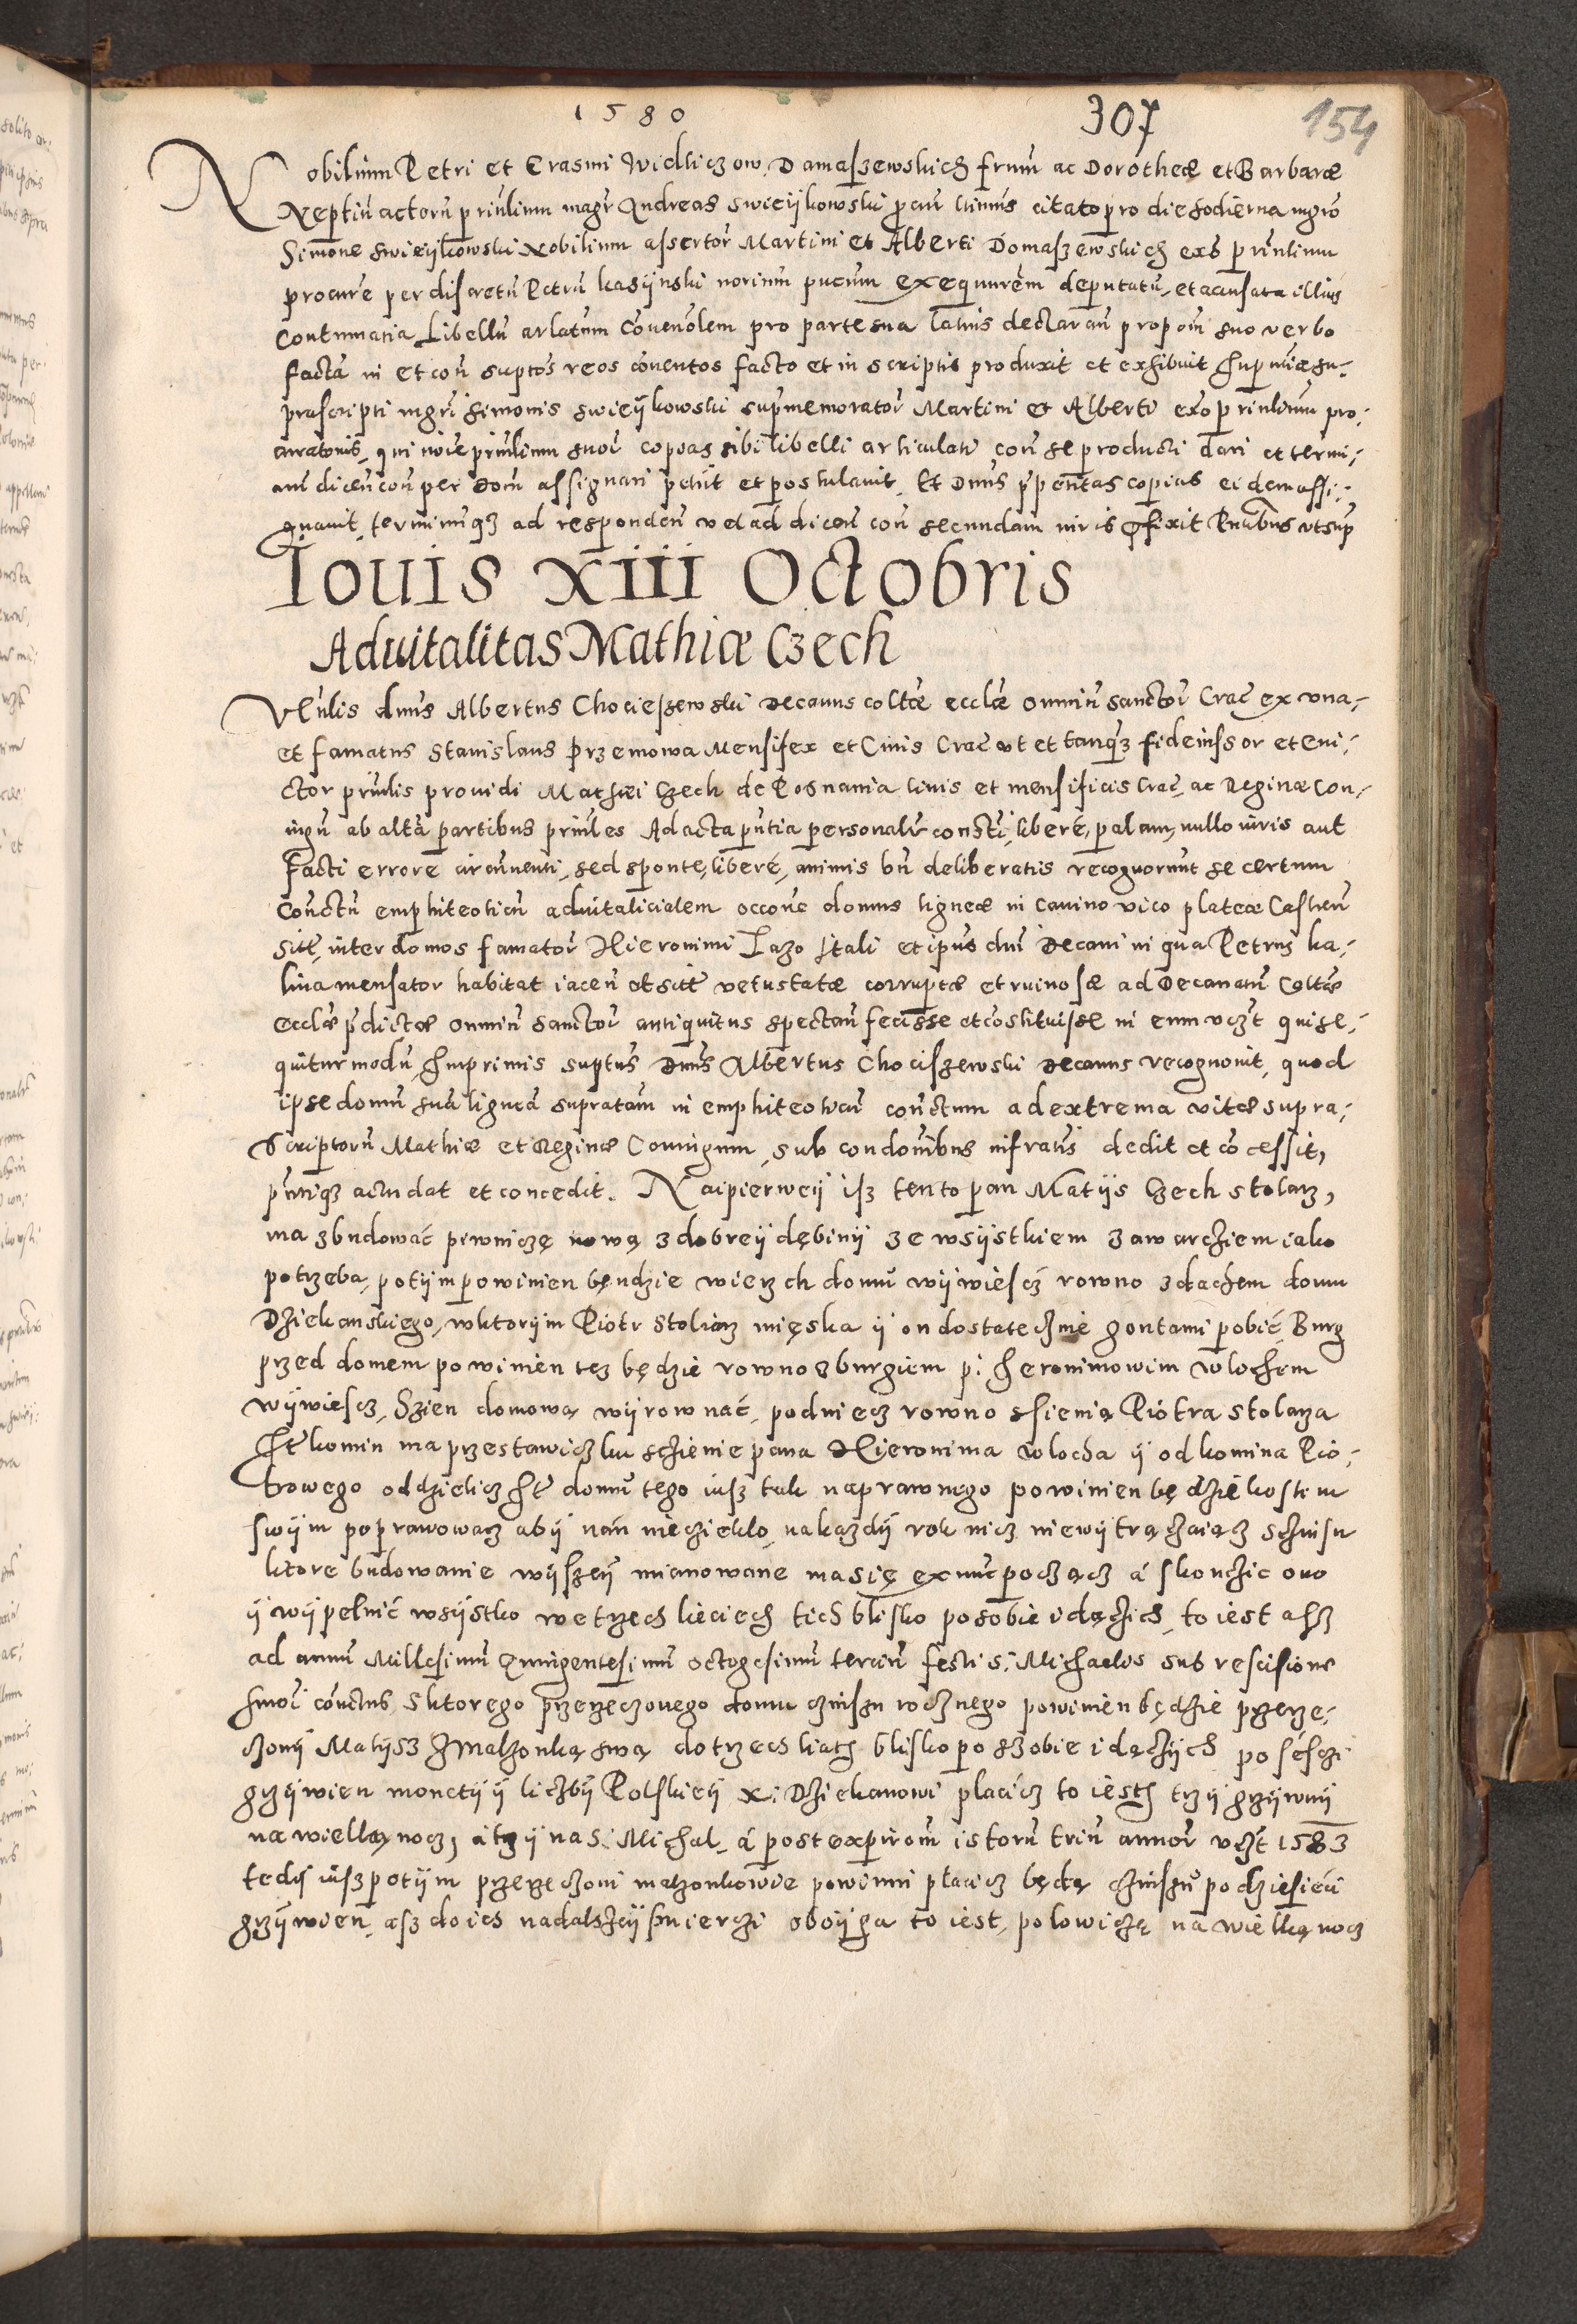 1580
307
154
Nobilium Petri et Erasmi Widliczow Damaszewskich frum ac Dorotheæ et Barbaræ
Neptiu actoru prinlium magr Andreas Swieijkowski citato pro die hodierna mgro
Simone Swieijkowski Nobilium assertor Martini et Alberti Domaszewskich exo prinlium
procure per discretu Petru kasijnski exequurem deputatu, et acausata illius
Contumatia Libellu arlatum Conuenolem pro parte sua latius declaran propoin suo verbo
facta in et con suptos reos conuentos facto et in scriptis produxit et exhibuit su-
prascripti mgri Simonis Swieijkowski supmemorator Martini et Alberti exo prinlium pro:
curatoris, qui noie prinlium suor copias sibi libelli articulati con se producti dari et termi:
num dicen con per Dom assignari petiit et postulauit, Et Dnus ppentas copias eidem assi:
gnauit terminumqz ad responden vel ad dicen con secundam iuris pfixit Pntibus vt sup
Iouis XIII Octobris
Aduitalitas Mathiæ Czech
VEnlis dnus Albertus Chocieszewski Decanus coltæ ecclæ omniu sanctor Crac ex vna,
et famatus Stanislaus Przemowa Mensifex et Ciuis Crac vt et tanqz fideiussor et eui:
ctor prinlis prouidi Mathei Czech de Posnania Ciuis et mensificis Crac, ac Reginæ Con:
iugu ab altà partibus prinles Ad acta pntia personalr constti, libere, palam, nullo iuris aut
facti errore circumuenti, sed sponte, libere, animis bn deliberatis recognouerunt se certum
Conctu emphiteoticu aduitalicialem occone domus ligneæ in Canino vico plateæ Castren
sitt, inter domos famator Hieronimi Iazo Itali et ipsius dni Decani in qua Petrus ka:
lina mensator habitat iacen et sitt vetustate corruptæ et ruinosæ ad Decanatu Coltæ
Ecclæ pdictæ omniu sanctor antiquitus spectan fecisse et constituisse in eum vczt qui se:
quitur modu, Imprimis suptus Dnus Albertus Chociszewski Decanus recognouit, quod
ipse domu sua lignea supratam in emphiteoticu conctum ad extrema vitæ supra:
scriptoru Mathiæ et Reginæ Coniugum, sub condonibus infratis dedit et concessit,
pntiqz actu dat et concedit. Naipierweij isz tento pan Matijs Czech stolarz,
ma zbudować piwniczę nową z dobreij dębinij ze wsijstkiem zawarcziem iako
potrzeba, potijm powinien bęndzie wierzch domu wijwiescz rowno z dachem domu
Dziekanskiego, w ktorijm Piotr Stolarz mięska ij on dostatecznie gontami pobić, Burg
przed domem powinien tez będzie rowno z burgiem p: Heronimowim Wlochem
wijwiescz, Szien domową wijrownać, podniecz rowno z sienią Piotra stolarza
It komin ma przestawicz ku scienie pana Hieronima Wlocha ij od komina Pio:
trowego oddzielicz It domu tego iusz tak naprawnego powinien będzie kostem
swijm poprawowacz abij nań nieczieklo, na kazdij rok nicz niewijtrączaiącz sczinsu
ktore budowanie wijszeij mianowane ma się ex nunc począćz á skonczic ono
ij wijpelnić wsijstko we trzech lieciech tich blisko po sobie idączich, to iest asz
ad annu Millesimu Quingentesimu octogesimu terciu festi S: Michaelis sub rescisione
hmoi conctus, S ktorego przerzeczonego domu czinszu rocznego powinien będzie przerze:
czonij Matijsz z Malzonką swą do trzech liath blisko po szobie idączijch po sesczi
grzijwien monetij ij liczbij Polskieij X: Dziekanowi placićz to iesth trzij grzijwnij
na wielką nocz, á trzij na S. Michal, á post expirom istoru triu annor vczt 1583
tedij iusz potijm przerzeczoni malzonkowie powinni placicz będą czinszu po dziesiecį
grzijwien, asz do ich nadalszeij smierczi oboijga to iest, polowiczę na wielką nocz